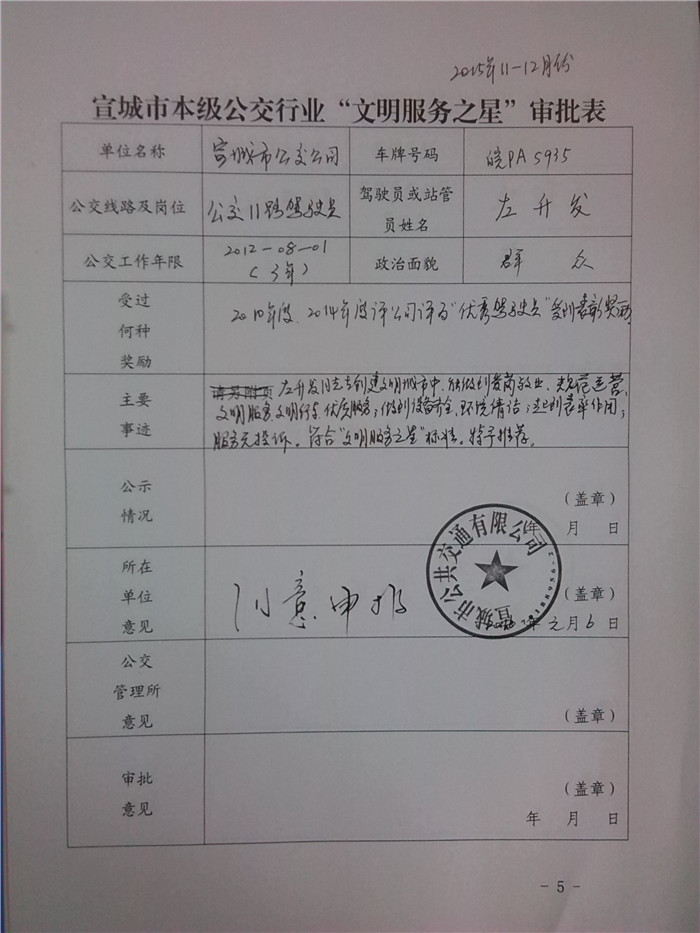 2015年11-12月份
宣城市本级公交行业“文明服务之星”审批表
单位名称 宣城市公交公司 车牌号码 皖PA5935
公交线路及岗位 公交11路驾驶员 驾驶员或站管员姓名 左升发
公交工作年限 2012-08-01（3年） 政治面貌 群众
受过
何种
奖励
2010年度、2014年度评公司评为“优秀驾驶员”受到表彰奖励
主要
事迹
请另附页 左升发同志在创建文明城市中，能做到爱岗敬业，规范运营，
文明服务，文明行车，优质服务；做到设备齐全，环境清洁；起到表率作用；
服务无投诉。符合“文明服务之星”标准。特予推荐。
公示
情况
（盖章）
年 月 日
所在
单位
意见
同意申报
宣城市公共交通有限公司
（盖章）
年元月6日
公交
管理所
意见
（盖章）
审批
意见
（盖章）
年 月 日
- 5 -